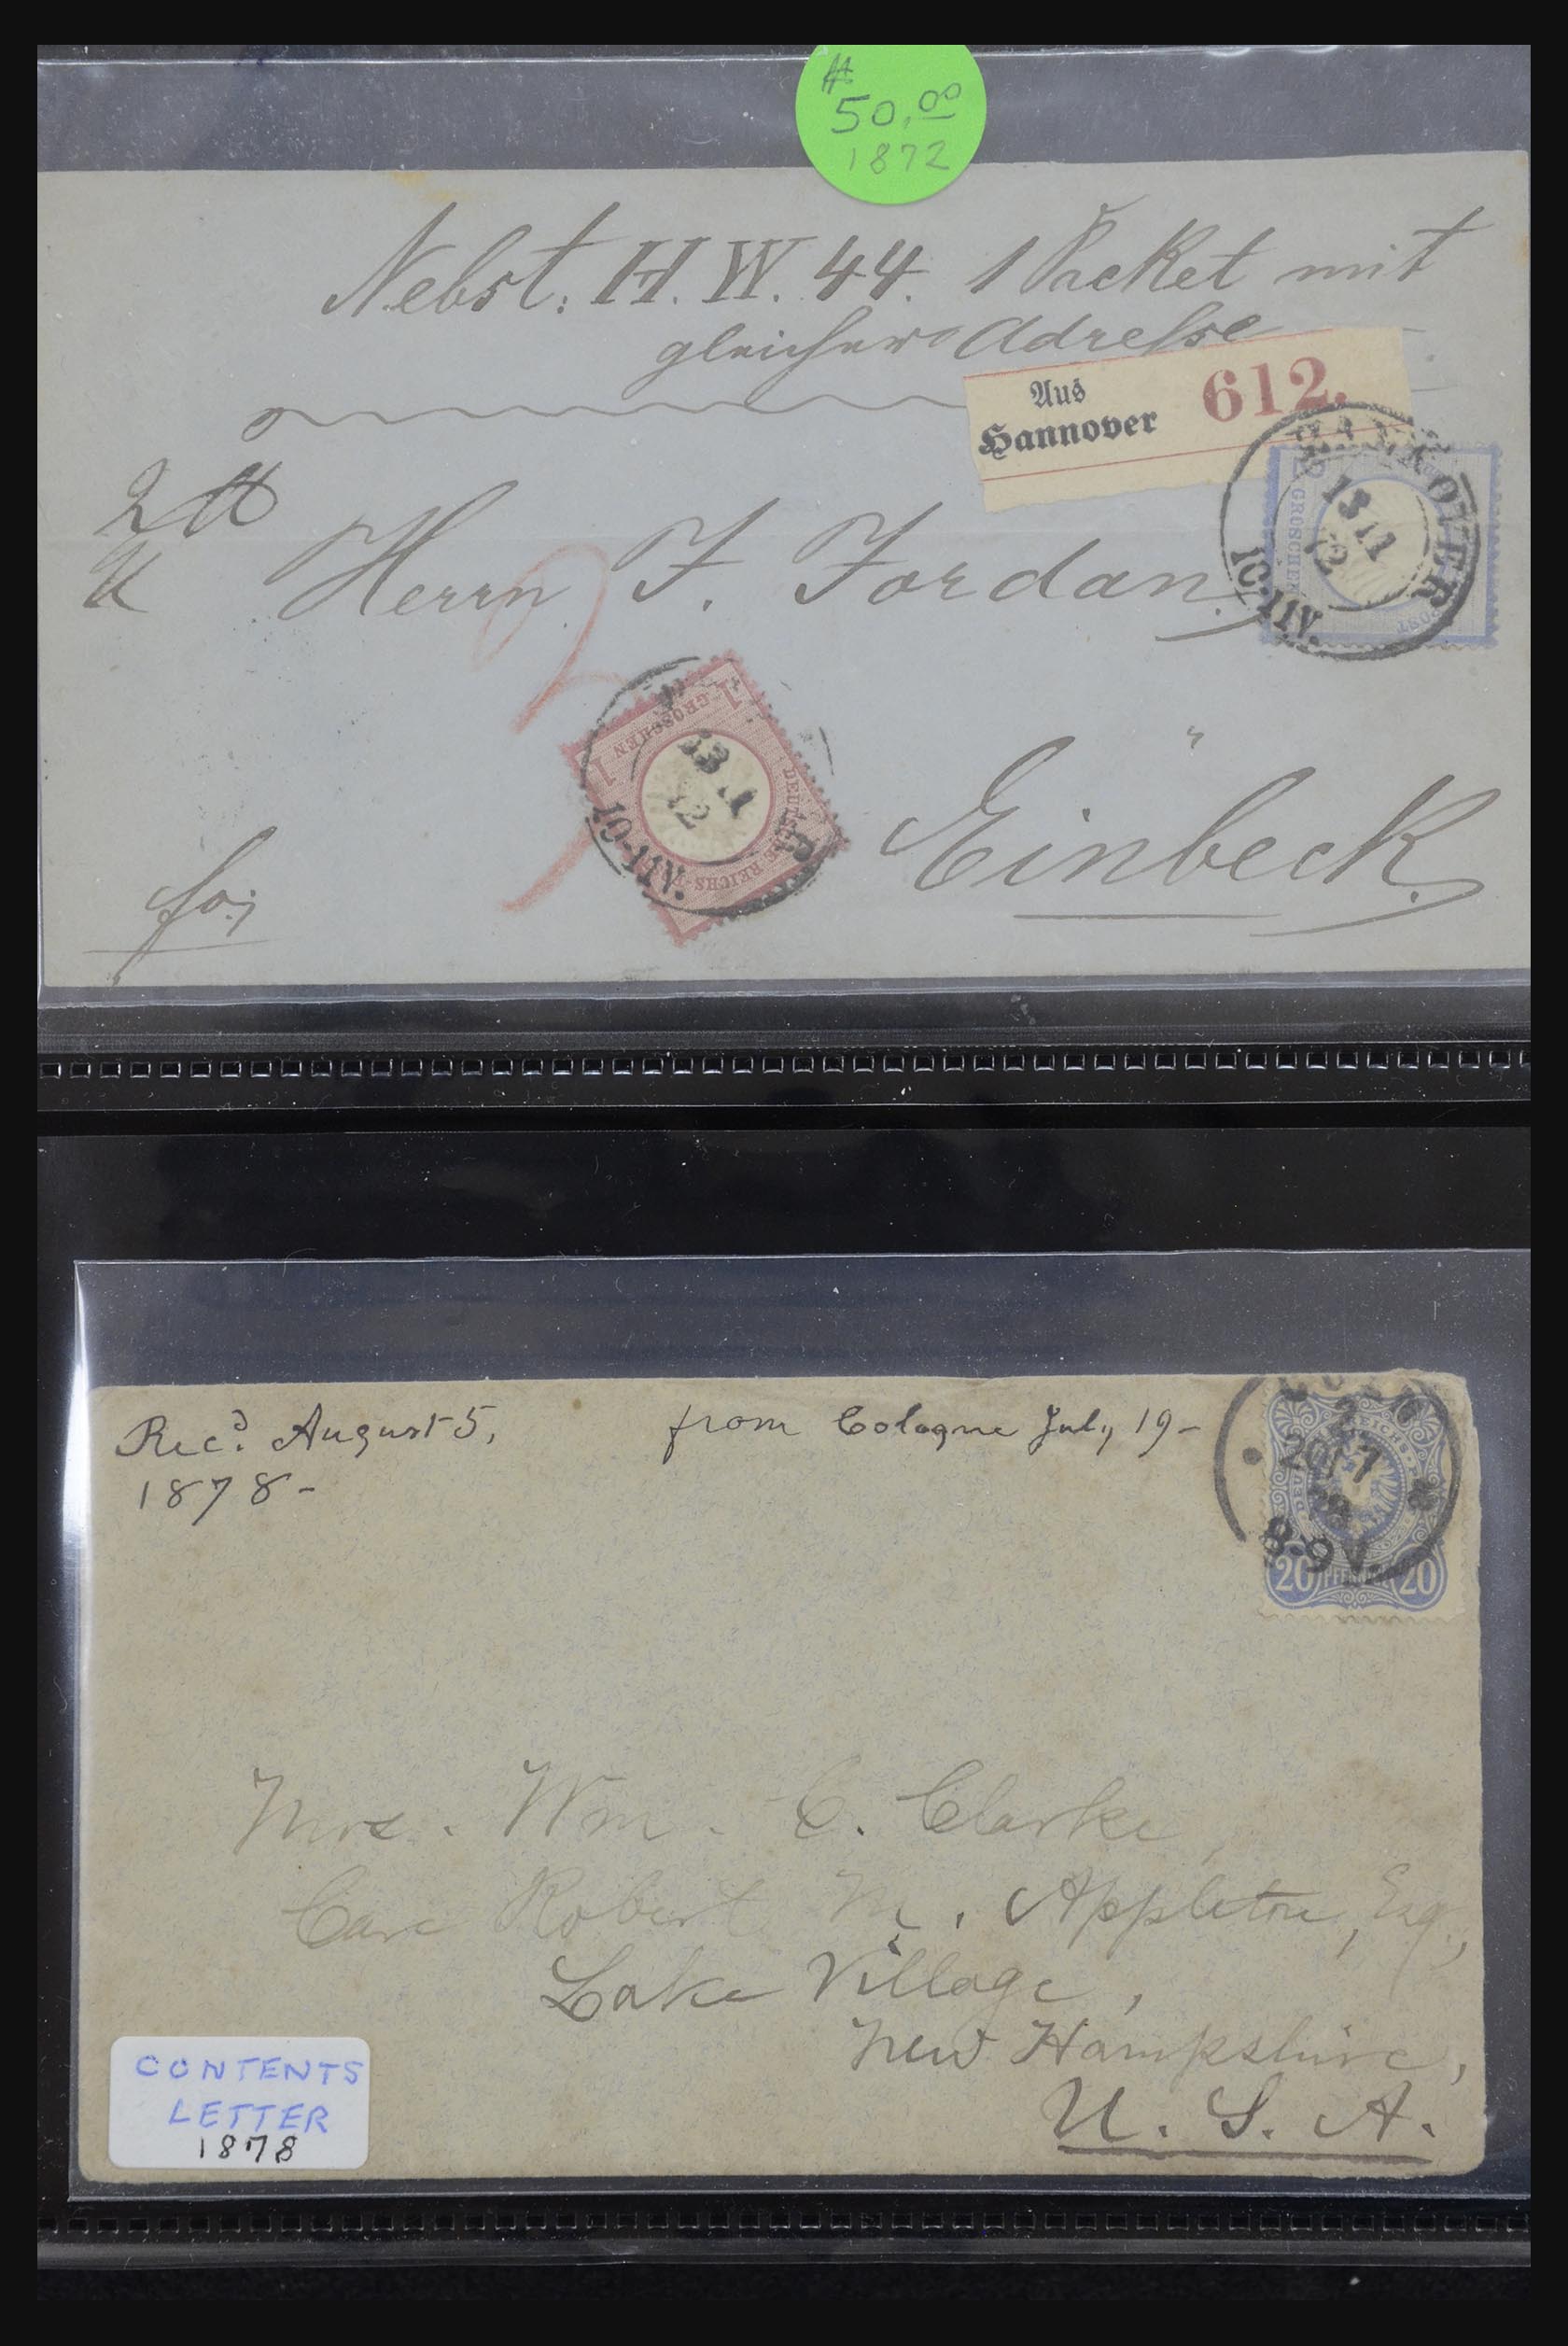 50,00
1872
Nebst: H. W. 44. 1 Packet mit
gleicher Adresse
Aus
Hannover 612.
HANNOVER
13 11
72
10-11V.
GROSCHEN
POST
Herrn J. Jordan.
1 GROSCHEN 1
DEUTSCHE REICHS-POST
13 11
72
10-11V.
Einbeck.
Recd. August 5,
1878-
from Cologne July 19-
2
20/7
78
8-9 V.
REICHS-P
20 PFENNIG 20
Mrs. Wm. C. Clarke,
Care Robert M. Appleton, Esq.,
Lake Village,
New Hampshire,
U. S. A.
CONTENTS
LETTER
1878